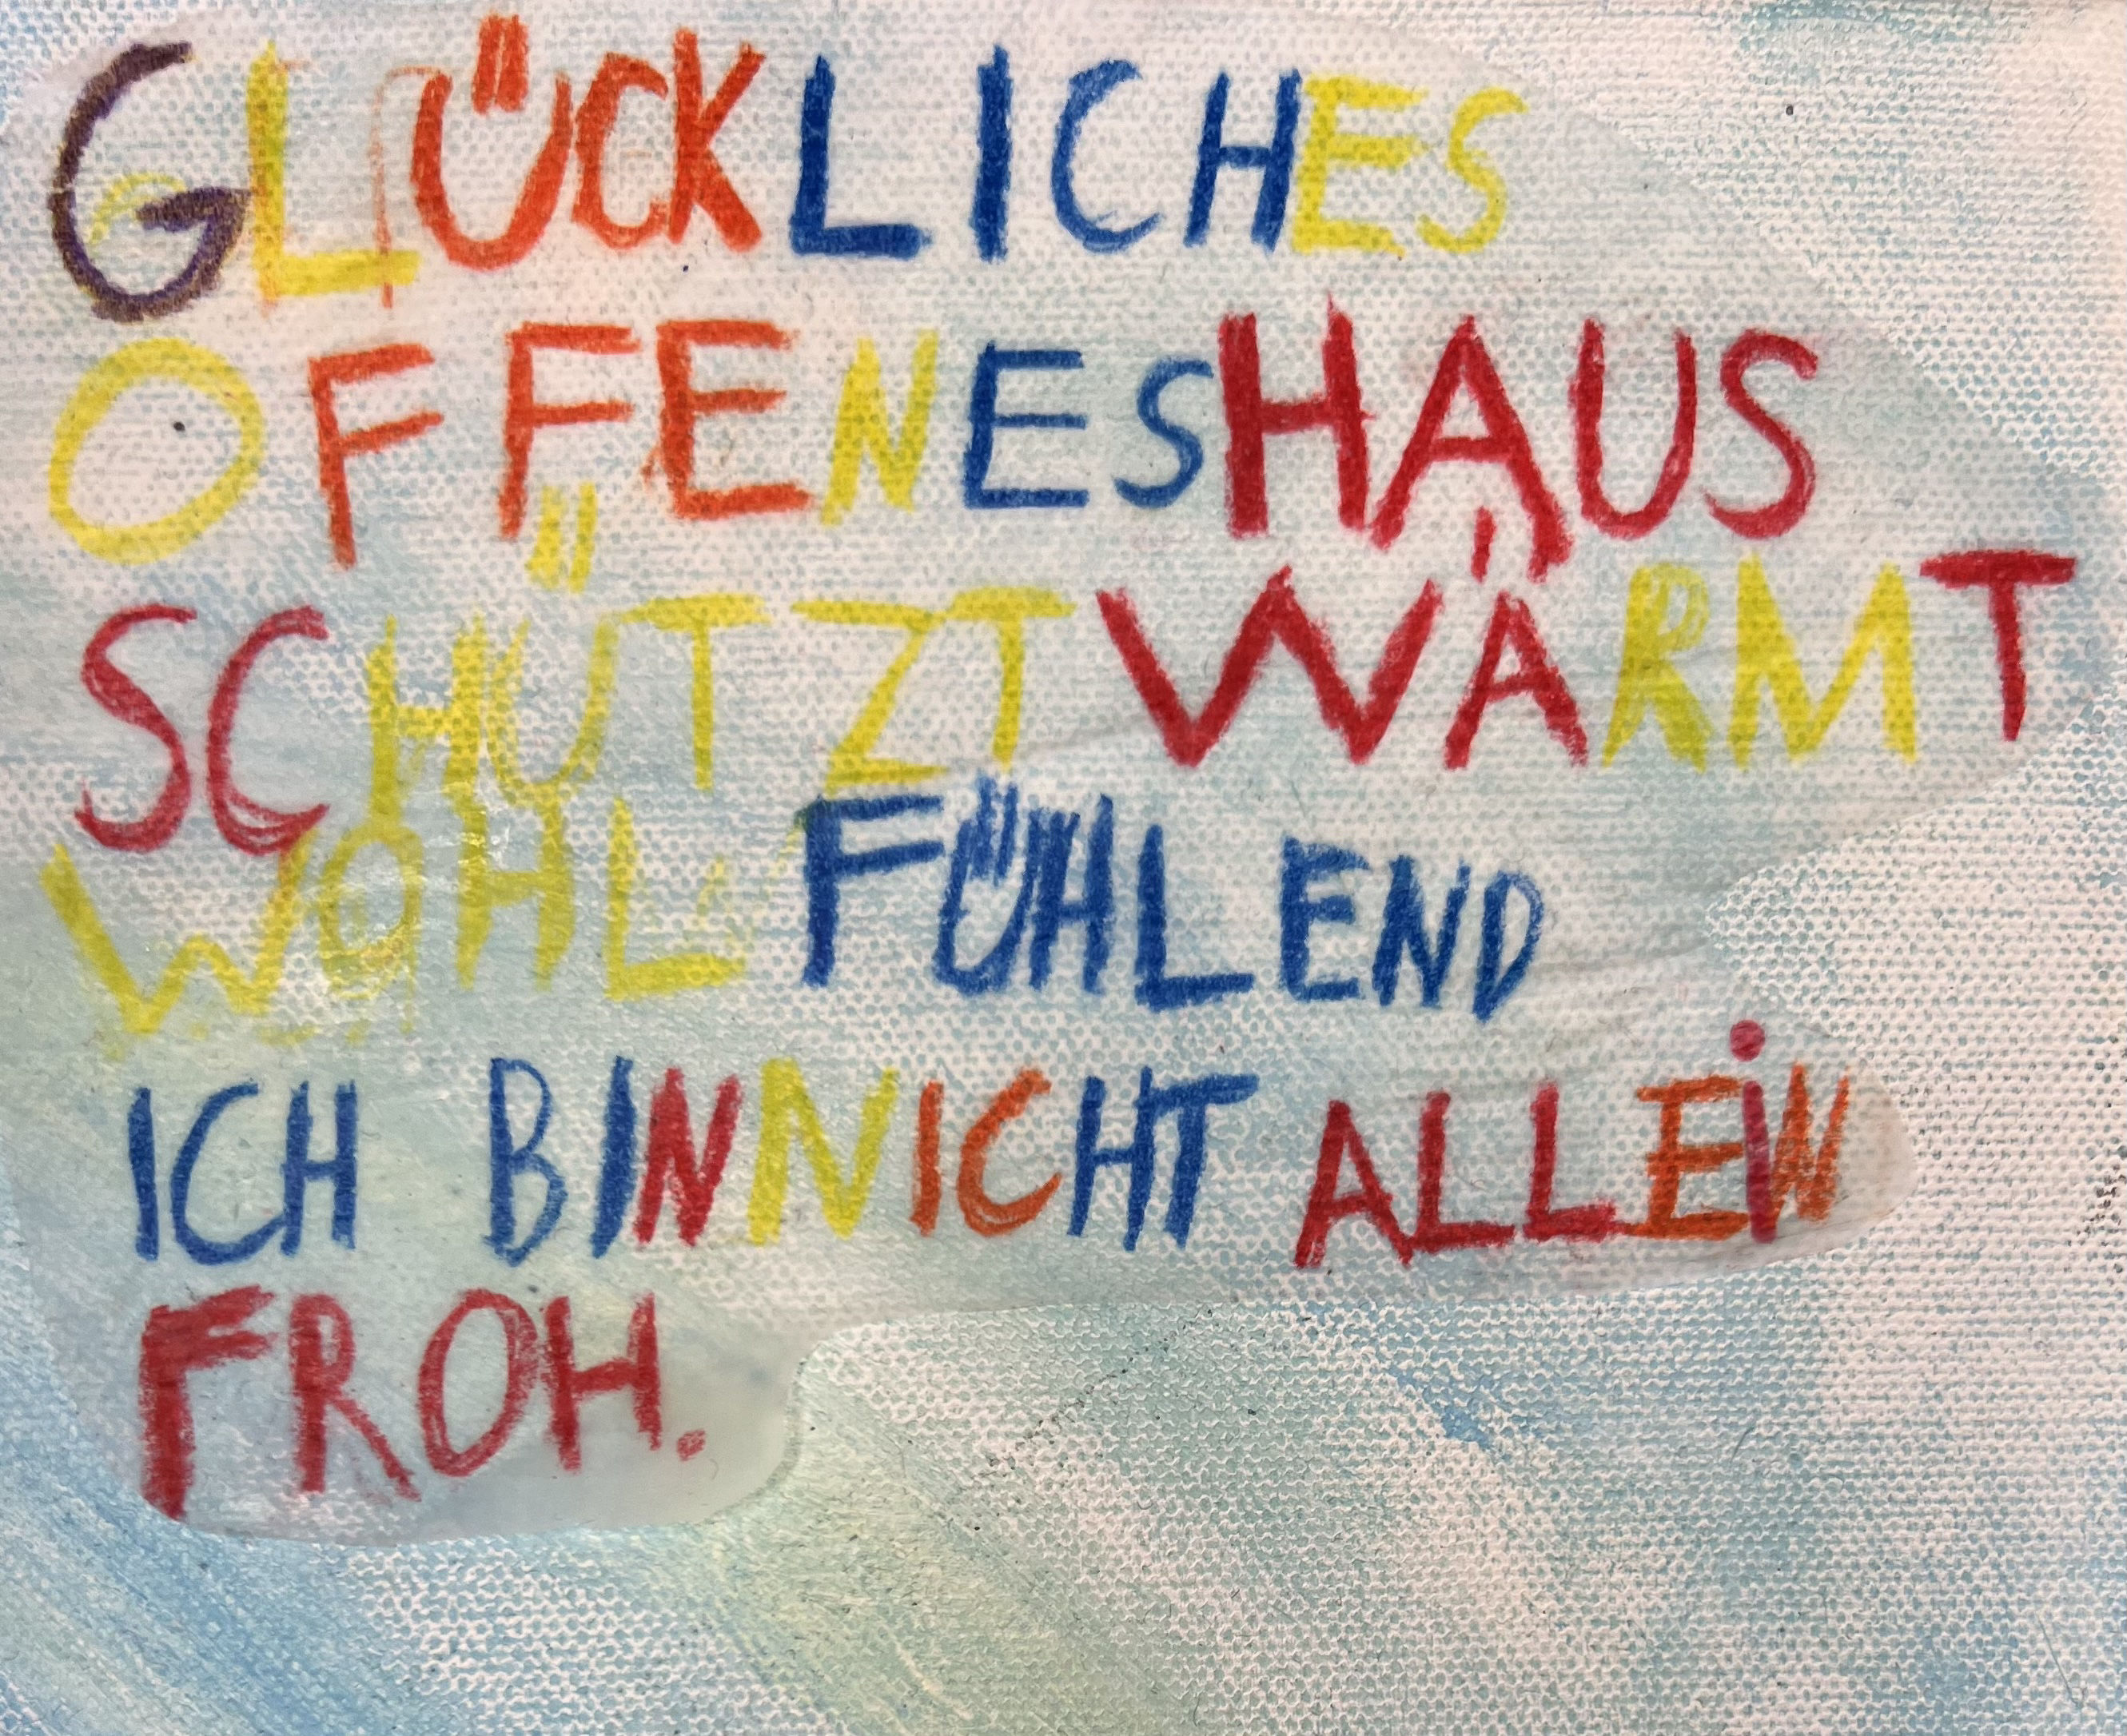 GLÜCKLICHES
OFFENES HAUS
SCHÜTZT WÄRMT
WOHL FÜHLEND
ICH BIN NICHT ALLEiN
FROH.